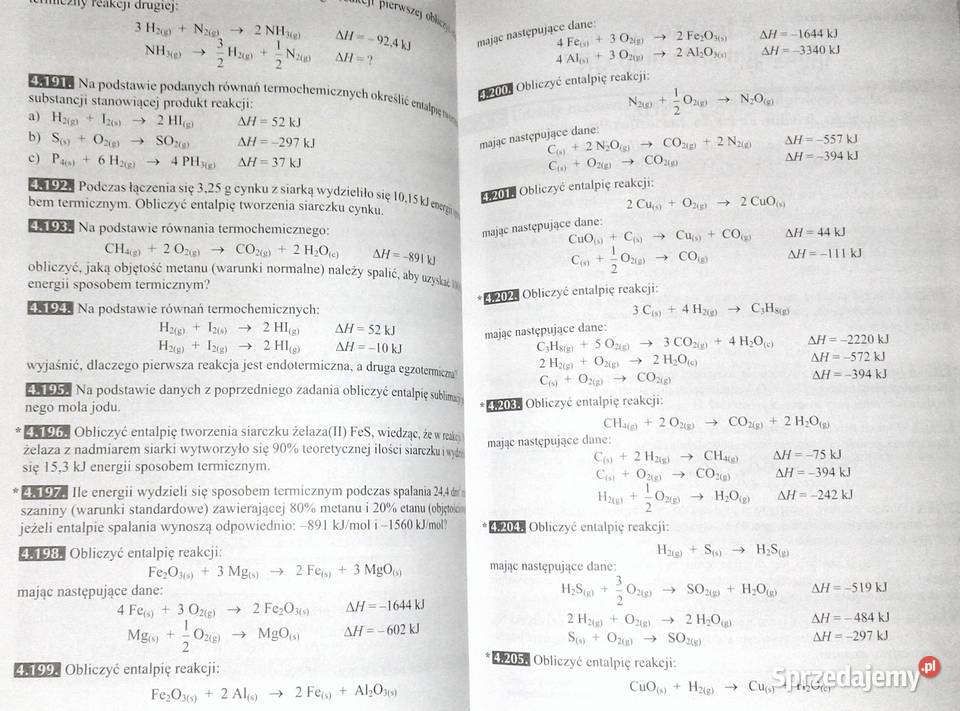 reakcji drugiej:
pierwszej
3 H₂(g) + N₂(g) → 2 NH₃(g) ΔH = – 92,4 kJ
NH₃(g) → 3/2 H₂(g) + 1/2 N₂(g) ΔH = ?
4.191. Na podstawie podanych równań termochemicznych określić entalpię
substancji stanowiącej produkt reakcji:
a) H₂(g) + I₂(s) → 2 HI(g) ΔH = 52 kJ
b) S(s) + O₂(g) → SO₂(g) ΔH = –297 kJ
c) P₄(s) + 6 H₂(g) → 4 PH₃(g) ΔH = 37 kJ
4.192. Podczas łączenia się 3,25 g cynku z siarką wydzieliło się 10,15 kJ energii
bem termicznym. Obliczyć entalpię tworzenia siarczku cynku.
4.193. Na podstawie równania termochemicznego:
CH₄(g) + 2 O₂(g) → CO₂(g) + 2 H₂O(c) ΔH = –891 kJ
obliczyć, jaką objętość metanu (warunki normalne) należy spalić, aby uzyskać
energii sposobem termicznym?
4.194. Na podstawie równań termochemicznych:
H₂(g) + I₂(s) → 2 HI(g) ΔH = 52 kJ
H₂(g) + I₂(g) → 2 HI(g) ΔH = –10 kJ
wyjaśnić, dlaczego pierwsza reakcja jest endotermiczna, a druga egzotermiczna?
4.195. Na podstawie danych z poprzedniego zadania obliczyć entalpię sublimacji
nego mola jodu.
*4.196. Obliczyć entalpię tworzenia siarczku żelaza(II) FeS, wiedząc, że w reakcji
żelaza z nadmiarem siarki wytworzyło się 90% teoretycznej ilości siarczku i
się 15,3 kJ energii sposobem termicznym.
*4.197. Ile energii wydzieli się sposobem termicznym podczas spalania 24,4 dm³
szaniny (warunki standardowe) zawierającej 80% metanu i 20% etanu
jeżeli entalpie spalania wynoszą odpowiednio: –891 kJ/mol i –1560 kJ/mol?
4.198. Obliczyć entalpię reakcji:
Fe₂O₃(s) + 3 Mg(s) → 2 Fe(s) + 3 MgO(s)
mając następujące dane:
4 Fe(s) + 3 O₂(g) → 2 Fe₂O₃(s) ΔH = –1644 kJ
Mg(s) + 1/2 O₂(g) → MgO(s) ΔH = – 602 kJ
4.199. Obliczyć entalpię reakcji:
Fe₂O₃(s) + 2 Al(s) → 2 Fe(s) + Al₂O₃(s)
mając następujące dane:
4 Fe(s) + 3 O₂(g) → 2 Fe₂O₃(s) ΔH = –1644 kJ
4 Al(s) + 3 O₂(g) → 2 Al₂O₃(s) ΔH = –3340 kJ
4.200. Obliczyć entalpię reakcji:
N₂(g) + 1/2 O₂(g) → N₂O(g)
mając następujące dane:
C(s) + 2 N₂O(g) → CO₂(g) + 2 N₂(g) ΔH = –557 kJ
C(s) + O₂(g) → CO₂(g) ΔH = –394 kJ
4.201. Obliczyć entalpię reakcji:
2 Cu(s) + O₂(g) → 2 CuO(s)
mając następujące dane:
CuO(s) + C(s) → Cu(s) + CO(g) ΔH = 44 kJ
C(s) + 1/2 O₂(g) → CO(g) ΔH = –111 kJ
*4.202. Obliczyć entalpię reakcji:
3 C(s) + 4 H₂(g) → C₃H₈(g)
mając następujące dane:
C₃H₈(g) + 5 O₂(g) → 3 CO₂(g) + 4 H₂O(c) ΔH = –2220 kJ
2 H₂(g) + O₂(g) → 2 H₂O(c) ΔH = –572 kJ
C(s) + O₂(g) → CO₂(g) ΔH = –394 kJ
*4.203. Obliczyć entalpię reakcji:
CH₄(g) + 2 O₂(g) → CO₂(g) + 2 H₂O(g)
mając następujące dane:
C(s) + 2 H₂(g) → CH₄(g) ΔH = –75 kJ
C(s) + O₂(g) → CO₂(g) ΔH = –394 kJ
H₂(g) + 1/2 O₂(g) → H₂O(g) ΔH = –242 kJ
*4.204. Obliczyć entalpię reakcji:
H₂(g) + S(s) → H₂S(g)
mając następujące dane:
H₂S(g) + 3/2 O₂(g) → SO₂(g) + H₂O(g) ΔH = –519 kJ
2 H₂(g) + O₂(g) → 2 H₂O(g) ΔH = – 484 kJ
S(s) + O₂(g) → SO₂(g) ΔH = –297 kJ
*4.205. Obliczyć entalpię reakcji:
CuO(s) + H₂(g) → Cu(s) + H₂O(c)
Sprzedajemy.pl